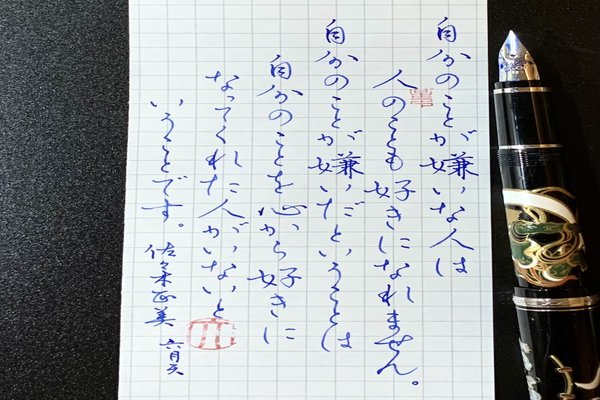 自分のことが嫌いな人は
人のことも好きになれません。
自分のことが嫌いだということは
自分のことを心から好きに
なってくれた人がいないと
いうことです。 佐々木正美